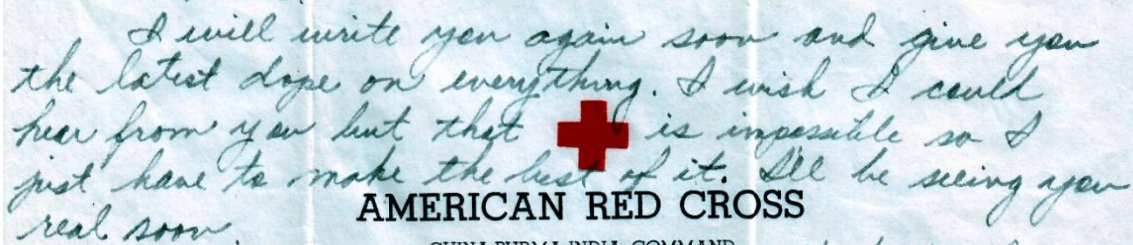 I will write you again soon and give you
the latest dope on everything. I wish I could
hear from you but that is impossible so I
just have to make the best of it. I'll be seeing you
real soon
AMERICAN RED CROSS
CHINA BURMA INDIA COMMAND